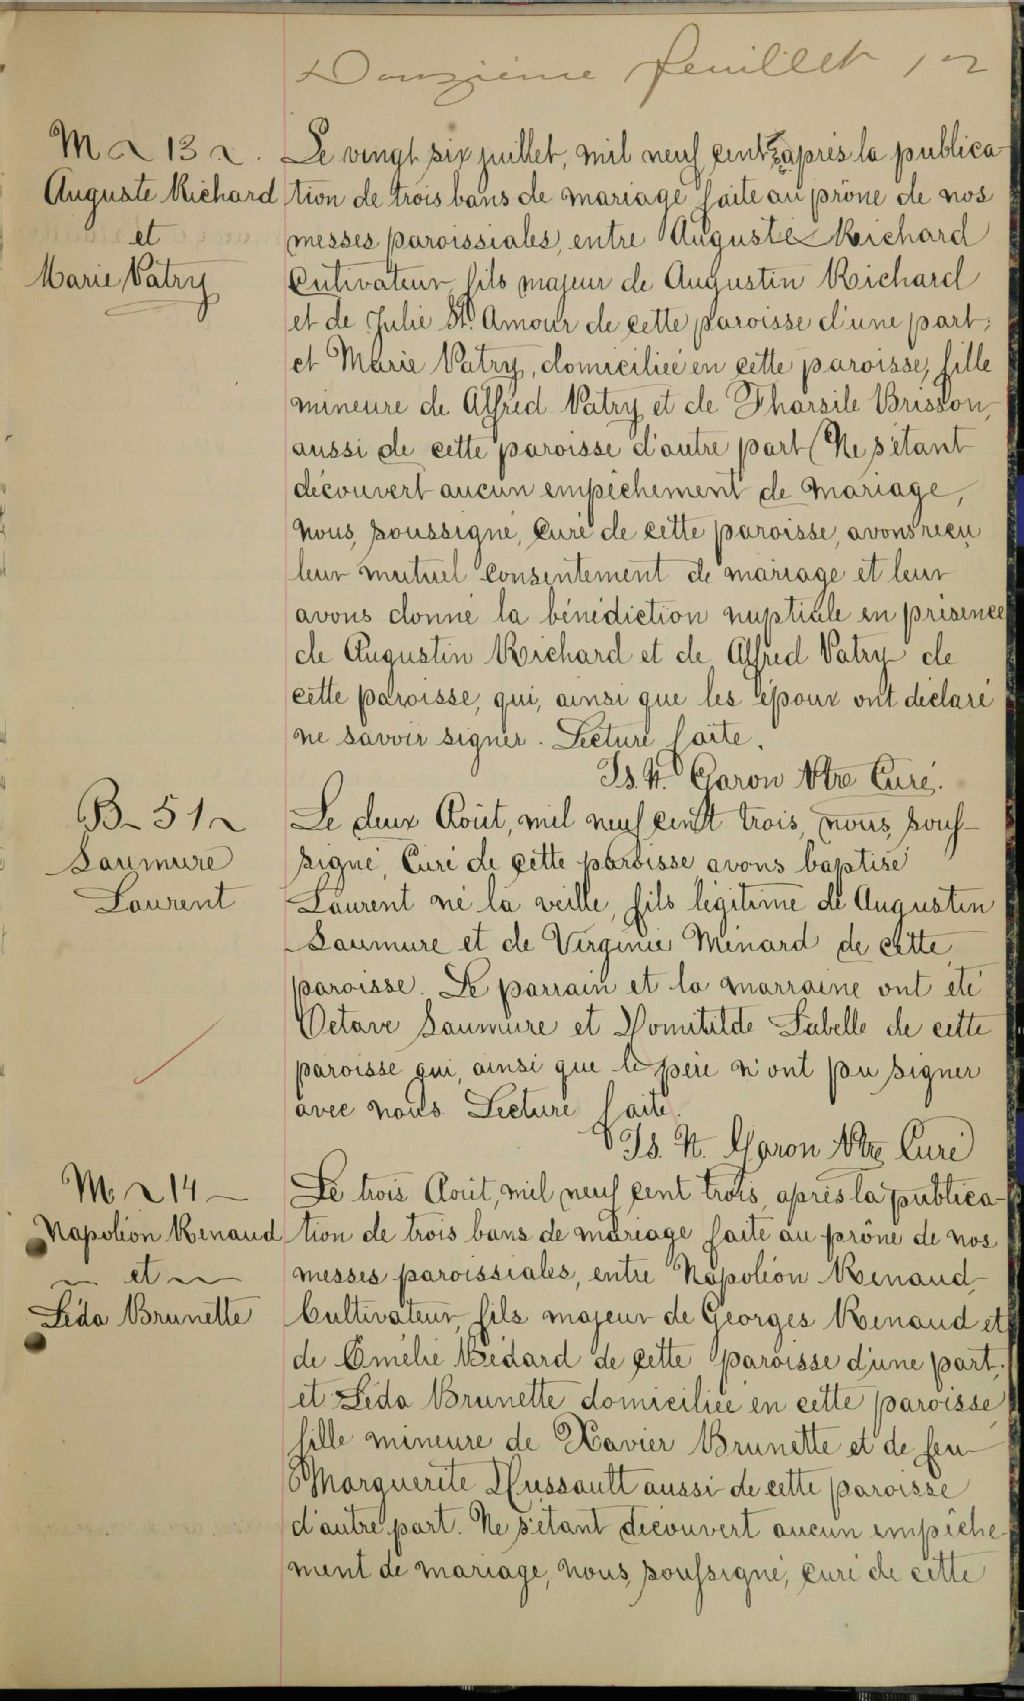 Douzième feuillet 12
M 13
Auguste Richard
et
Marie Patry
Le vingt six juillet, mil neuf cent trois après la publica-
tion de trois bans de mariage faite au prône de nos
messes paroissiales, entre Auguste Richard
Cutivateur, fils majeur de Augustin Richard
et de Julie St. Amour de cette paroisse d'une part;
et Marie Patry, domiciliée en cette paroisse, fille
mineure de Alfred Patry et de Tharsile Brisson,
aussi de cette paroisse d'autre part. Ne s'étant
découvert aucun empêchement de mariage,
nous, soussigné, Curé de cette paroisse, avons reçu
leur mutuel consentement de mariage et leur
avons donné la bénédiction nuptiale en présence
de Augustin Richard et de Alfred Patry de
cette paroisse, qui, ainsi que les époux ont déclaré
ne savoir signer. Lecture faite.
Is. N. Garon Ptre Curé.
B- 51
Saumure
Laurent
Le deux Août, mil neuf cent trois, nous, souf-
signé, Curé de cette paroisse avons baptisé
Laurent né la veille, fils légitime de Augustin
Saumure et de Virginie Ménard de cette
paroisse. Le parrain et la marraine ont été
Octave Saumure et Domitilde Labelle de cette
paroisse qui, ainsi que le père n'ont pu signer
avec nous. Lecture faite.
Is. N. Garon Ptre Curé
M 14
Napoléon Renaud
et
Léda Brunette
Le trois Août, mil neuf cent trois, après la publica-
tion de trois bans de mariage faite au prône de nos
messes paroissiales, entre Napoléon Renaud,
Cultivateur, fils majeur de Georges Renaud et
de Emélie Bédard de cette paroisse d'une part;
et Léda Brunette domiciliée en cette paroisse,
fille mineure de Xavier Brunette et de feu
Marguerite Dussault aussi de cette paroisse
d'autre part. Ne s'étant découvert aucun empêche-
ment de mariage, nous, soufsigné, curé de cette